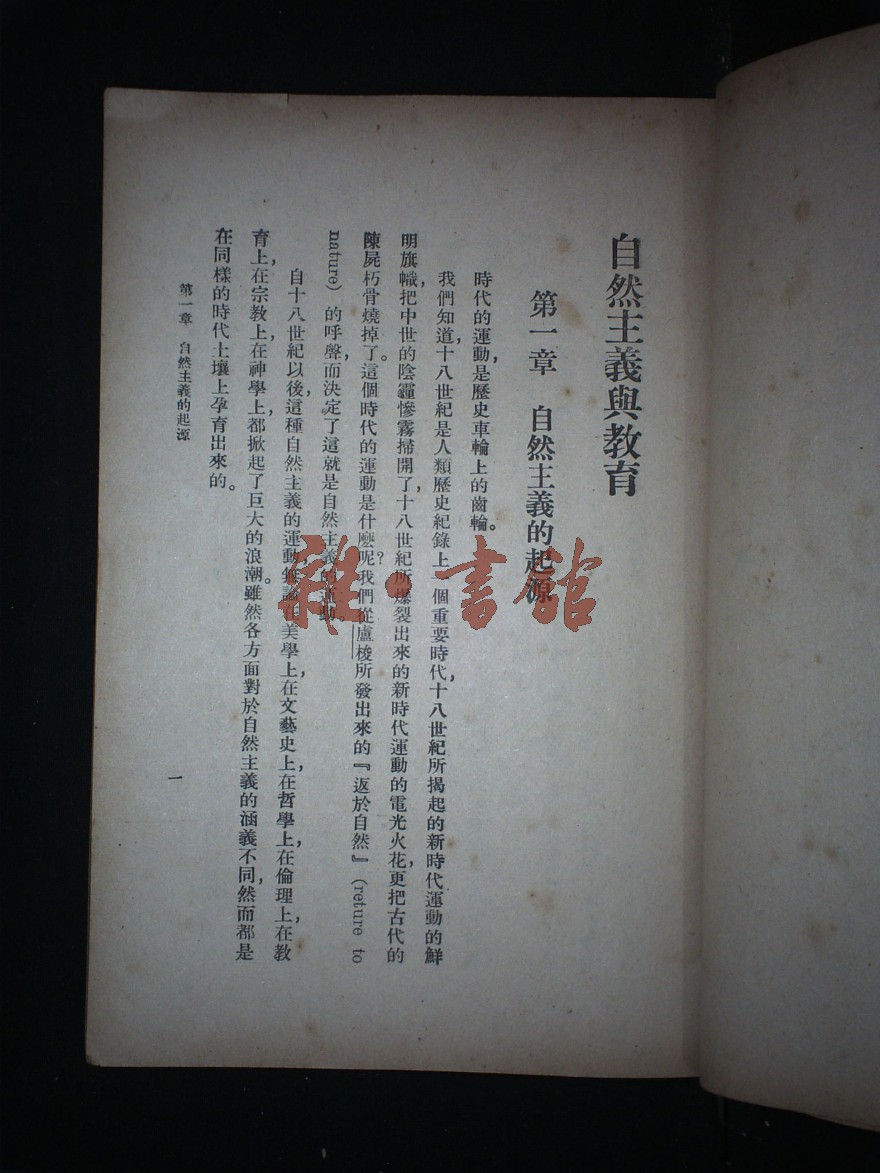 自然主義與教育
第一章 自然主義的起源
時代的運動，是歷史車輪上的齒輪。
我們知道，十八世紀是人類歷史紀錄上一個重要時代，十八世紀所揭起的新時代運動的鮮
明旗幟，把中世的陰霾慘霧掃開了，十八世紀所爆裂出來的新時代運動的電光火花，更把古代的
陳屍朽骨燒掉了。這個時代的運動是什麽呢？我們從盧梭所發出來的『返於自然』（returе to
nature）的呼聲，而決定了這就是自然主義的運動
自十八世紀以後，這種自然主義的運動，無論在美學上，在文藝史上，在哲學上，在倫理上，在教
育上，在宗教上，在神學上，都掀起了巨大的浪潮。雖然各方面對於自然主義的涵義不同，然而都是
在同樣的時代土壤上孕育出來的。
第一章 自然主義的起源
一
雜·書館